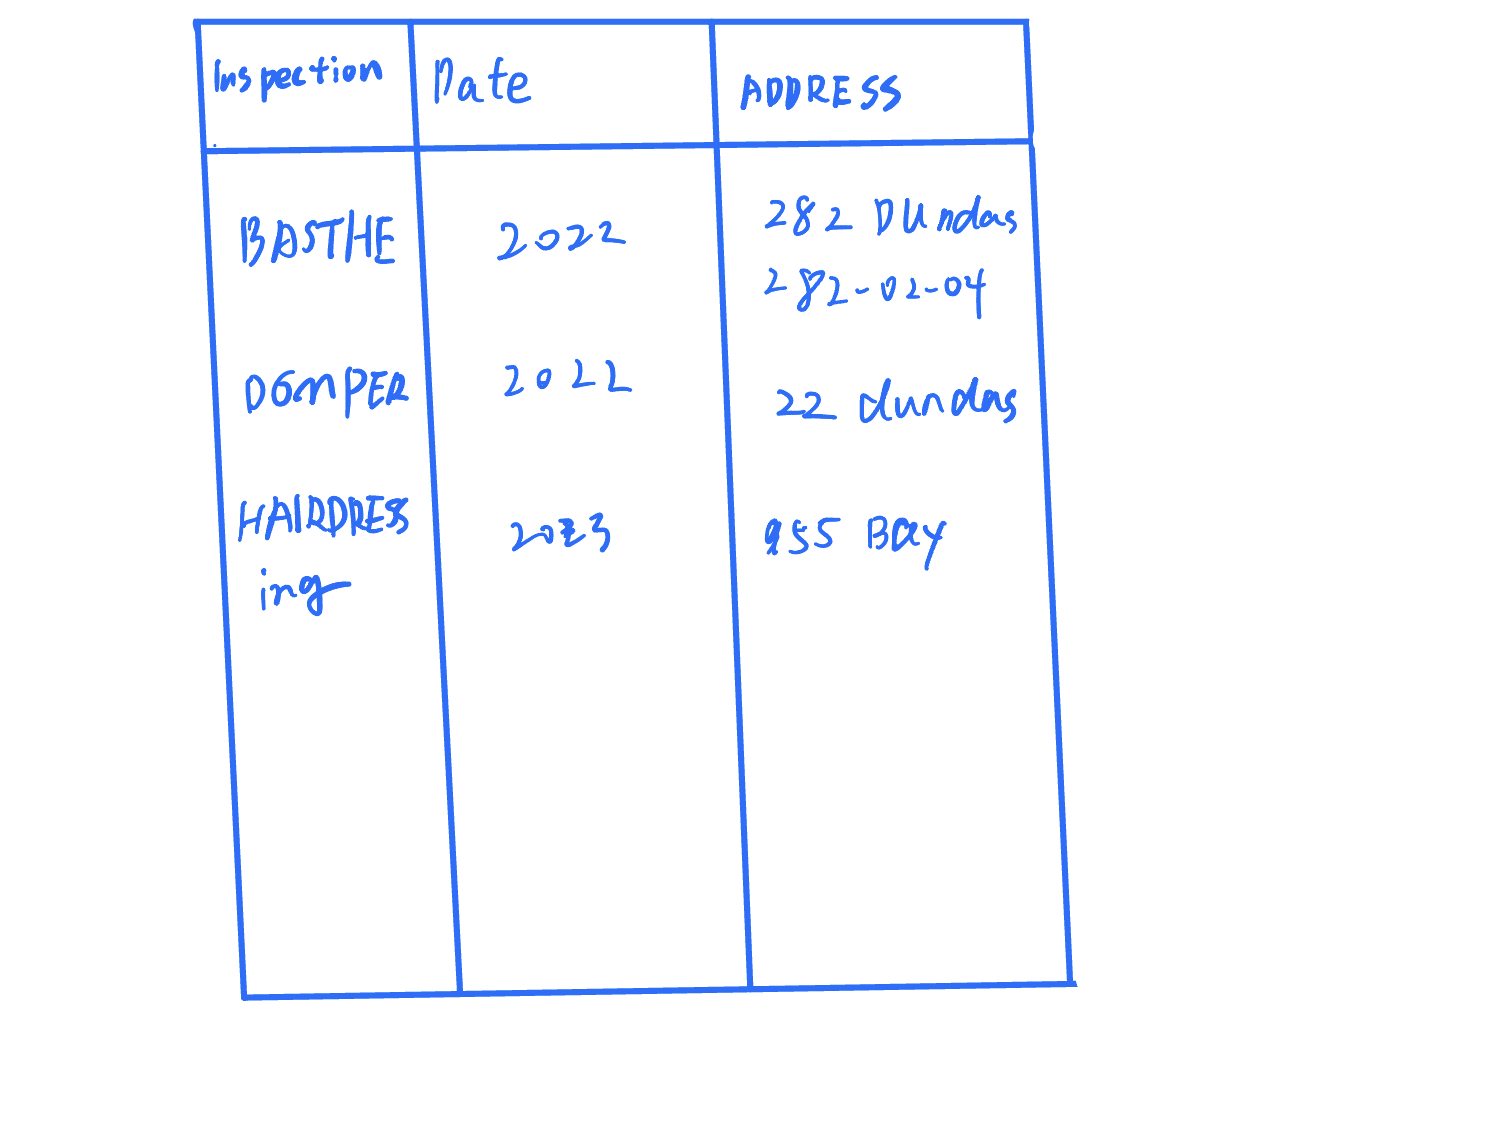 Inspection Date ADDRESS
BASTHE 2022 282 Dundas
282-02-04
DOMPER 2022 22 dundas
HAIRDRESS 2023 955 Bay
ing